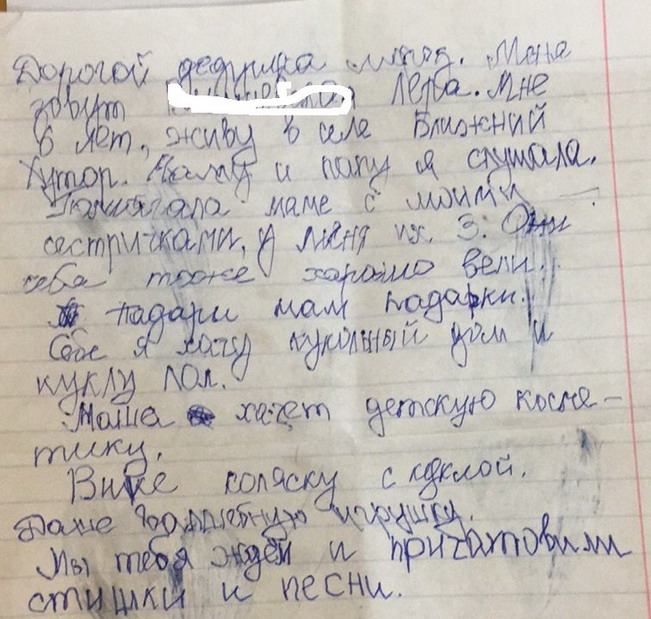 Дорогой дедушка мароз. Меня
зовут Лера. Мне
6 лет, живу в селе Ближний
Хутор. Маму и папу я слушала.
Помагала маме с моими
сестричками, у меня их 3. Они
себа тоже харошо вели.
падари нам падарки.
Себе я хачу кукольный дом и
куклу лол.
Маша хачет детскую косме-
тику.
Вике коляску с куклой.
Даше волшебную игрушку.
Мы тебя ждем и пригатовили
стишки и песни.